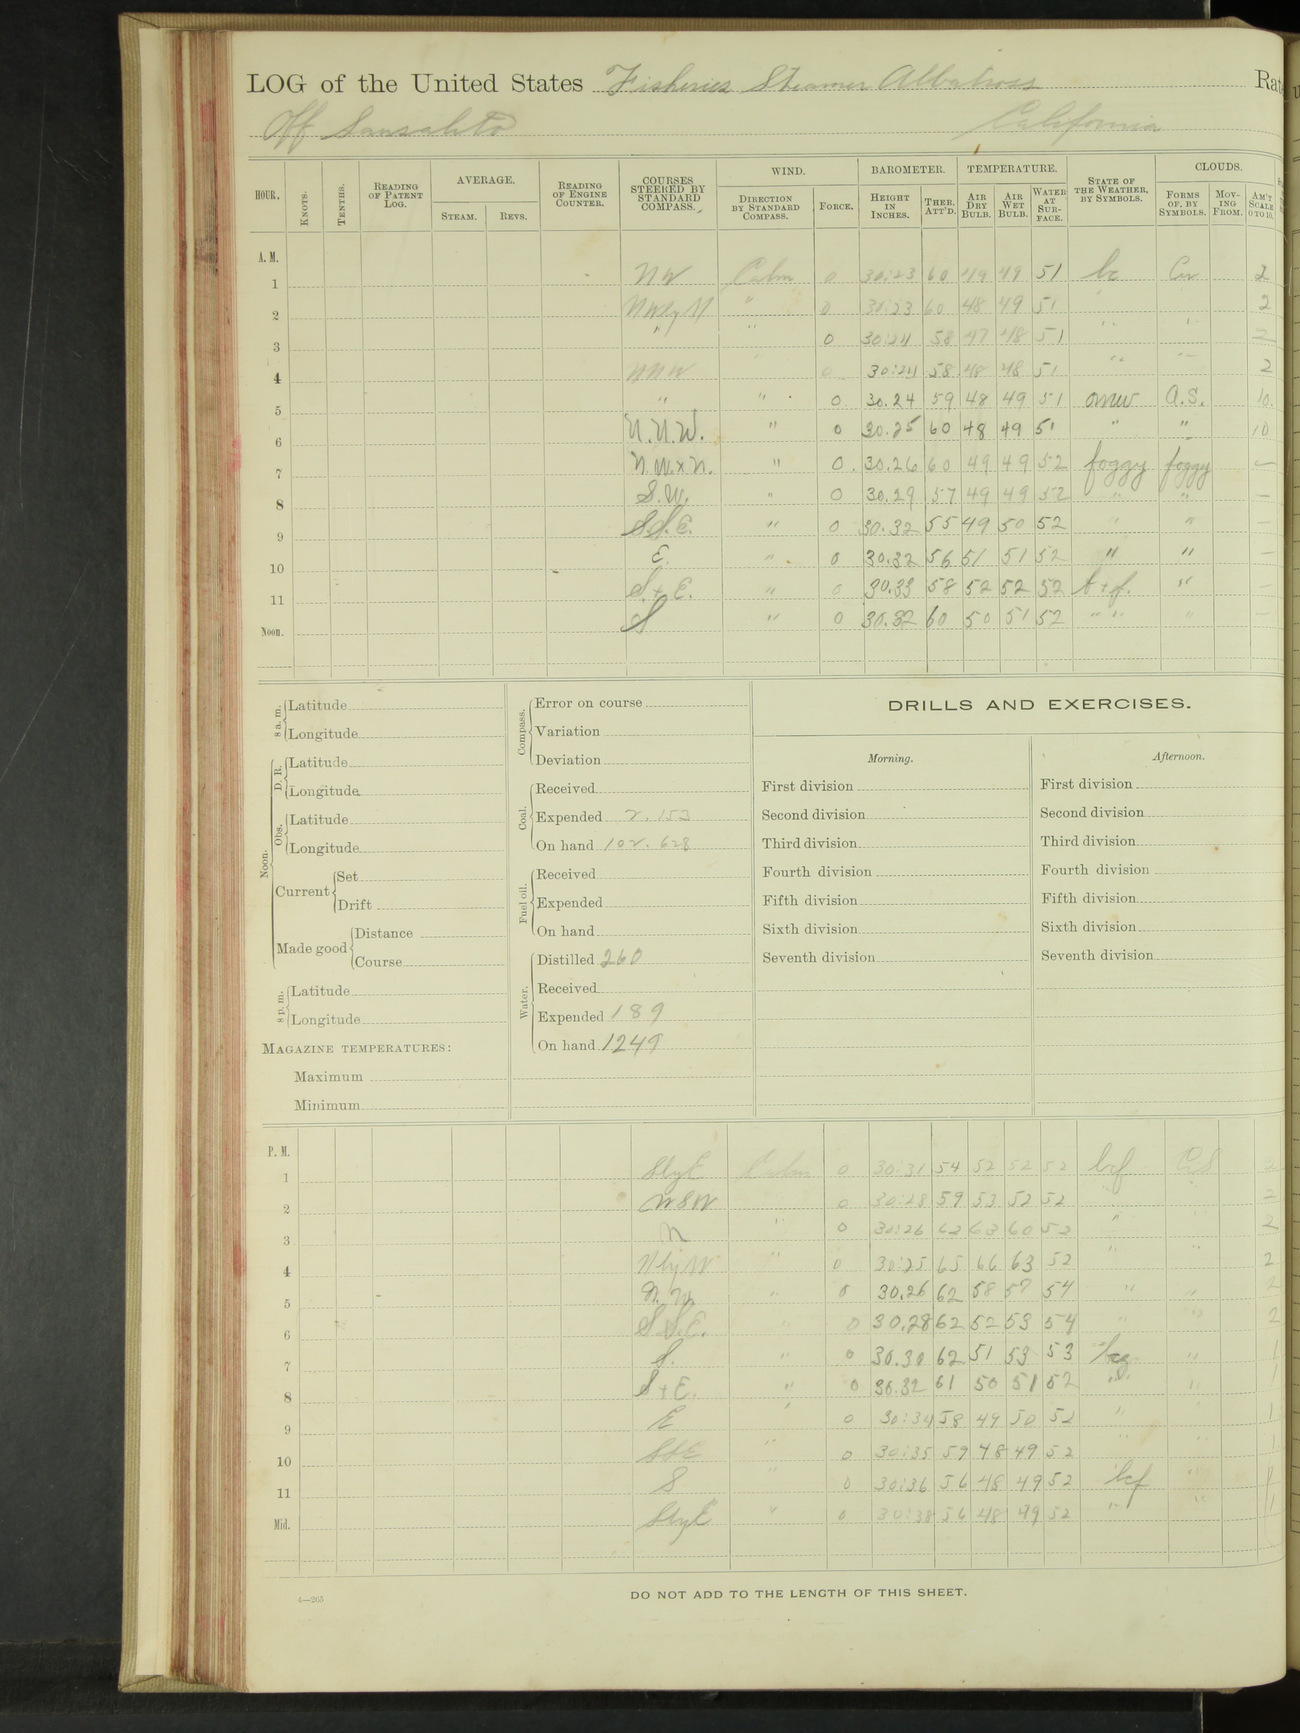 LOG of the United States Fisheries Steamer Albatross Rat
Off Sausalito California
HOUR. KNOTS. TENTHS. READING OF PATENT LOG. AVERAGE. STEAM. REVS. READING OF ENGINE COUNTER. COURSES STEERED BY STANDARD COMPASS. WIND. DIRECTION BY STANDARD COMPASS. FORCE. BAROMETER. HEIGHT IN INCHES. THER. ATT'D. TEMPERATURE. AIR DRY BULB. AIR WET BULB. WATER AT SURFACE. STATE OF THE WEATHER, BY SYMBOLS. CLOUDS. FORMS OF, BY SYMBOLS. MOVING FROM. AM'T SCALE 0 TO 10.
A. M.
1 NW Calm 0 30:23 60 49 49 51 bc 2
2 NW by N " 0 30:23 60 48 49 51 " 2
3 " " 0 30:24 58 47 48 51 " " 2
4 NNW 0 30:24 58 48 48 51 " " 2
5 " " 0 30.24 59 48 49 51 A.S. 10
6 N.N.W. " 0 30.25 60 48 49 51 " " 10
7 N.W.xN. " 0. 30.26 60 49 49 52 foggy foggy —
8 S.W. " 0 30.29 57 49 49 52 " " —
9 S.S.E. " 0 30.32 55 49 50 52 " " —
10 E. " 0 30.32 56 51 51 52 " " —
11 S.+E. " 0 30.33 58 52 52 52 b+f. " —
Noon. S " 0 30.32 60 50 51 52 " " " —
8 a. m. Latitude
Longitude
Noon. D. R. Latitude
Longitude
Obs. Latitude
Longitude
Current Set
Drift
Made good Distance
Course
8 p. m. Latitude
Longitude
MAGAZINE TEMPERATURES:
Maximum
Minimum
Compass. Error on course
Variation
Deviation
Coal. Received
Expended 2.153
On hand 102.628
Fuel oil. Received
Expended
On hand
Water. Distilled 260
Received
Expended 189
On hand 1249
DRILLS AND EXERCISES.
Morning.
First division
Second division
Third division
Fourth division
Fifth division
Sixth division
Seventh division
Afternoon.
First division
Second division
Third division
Fourth division
Fifth division
Sixth division
Seventh division
P. M.
1 SbyE Calm 0 30:31 54 52 52 52 bcf CS
2 WSW 0 30:28 59 53 52 52 2
3 N " 0 30:26 62 63 60 52 " 2
4 NbyW " 0 30:25 65 66 63 52 " " 2
5 N.W. " 0 30.26 62 58 57 54 " " 2
6 S.S.E. " 0 30.28 62 52 53 54 " " 2
7 S. " 0 30.30 62 51 53 53 " 1
8 S+E. " 0 30.32 61 50 51 52 " " 1
9 E " 0 30:34 58 49 50 52 " 1
10 SSE " 0 30:35 59 48 49 52 " " 1
11 S " 0 30:36 56 48 49 52 bcf " 1
Mid. SbyE " 0 30:38 56 48 49 52 " " 1
4—265
DO NOT ADD TO THE LENGTH OF THIS SHEET.